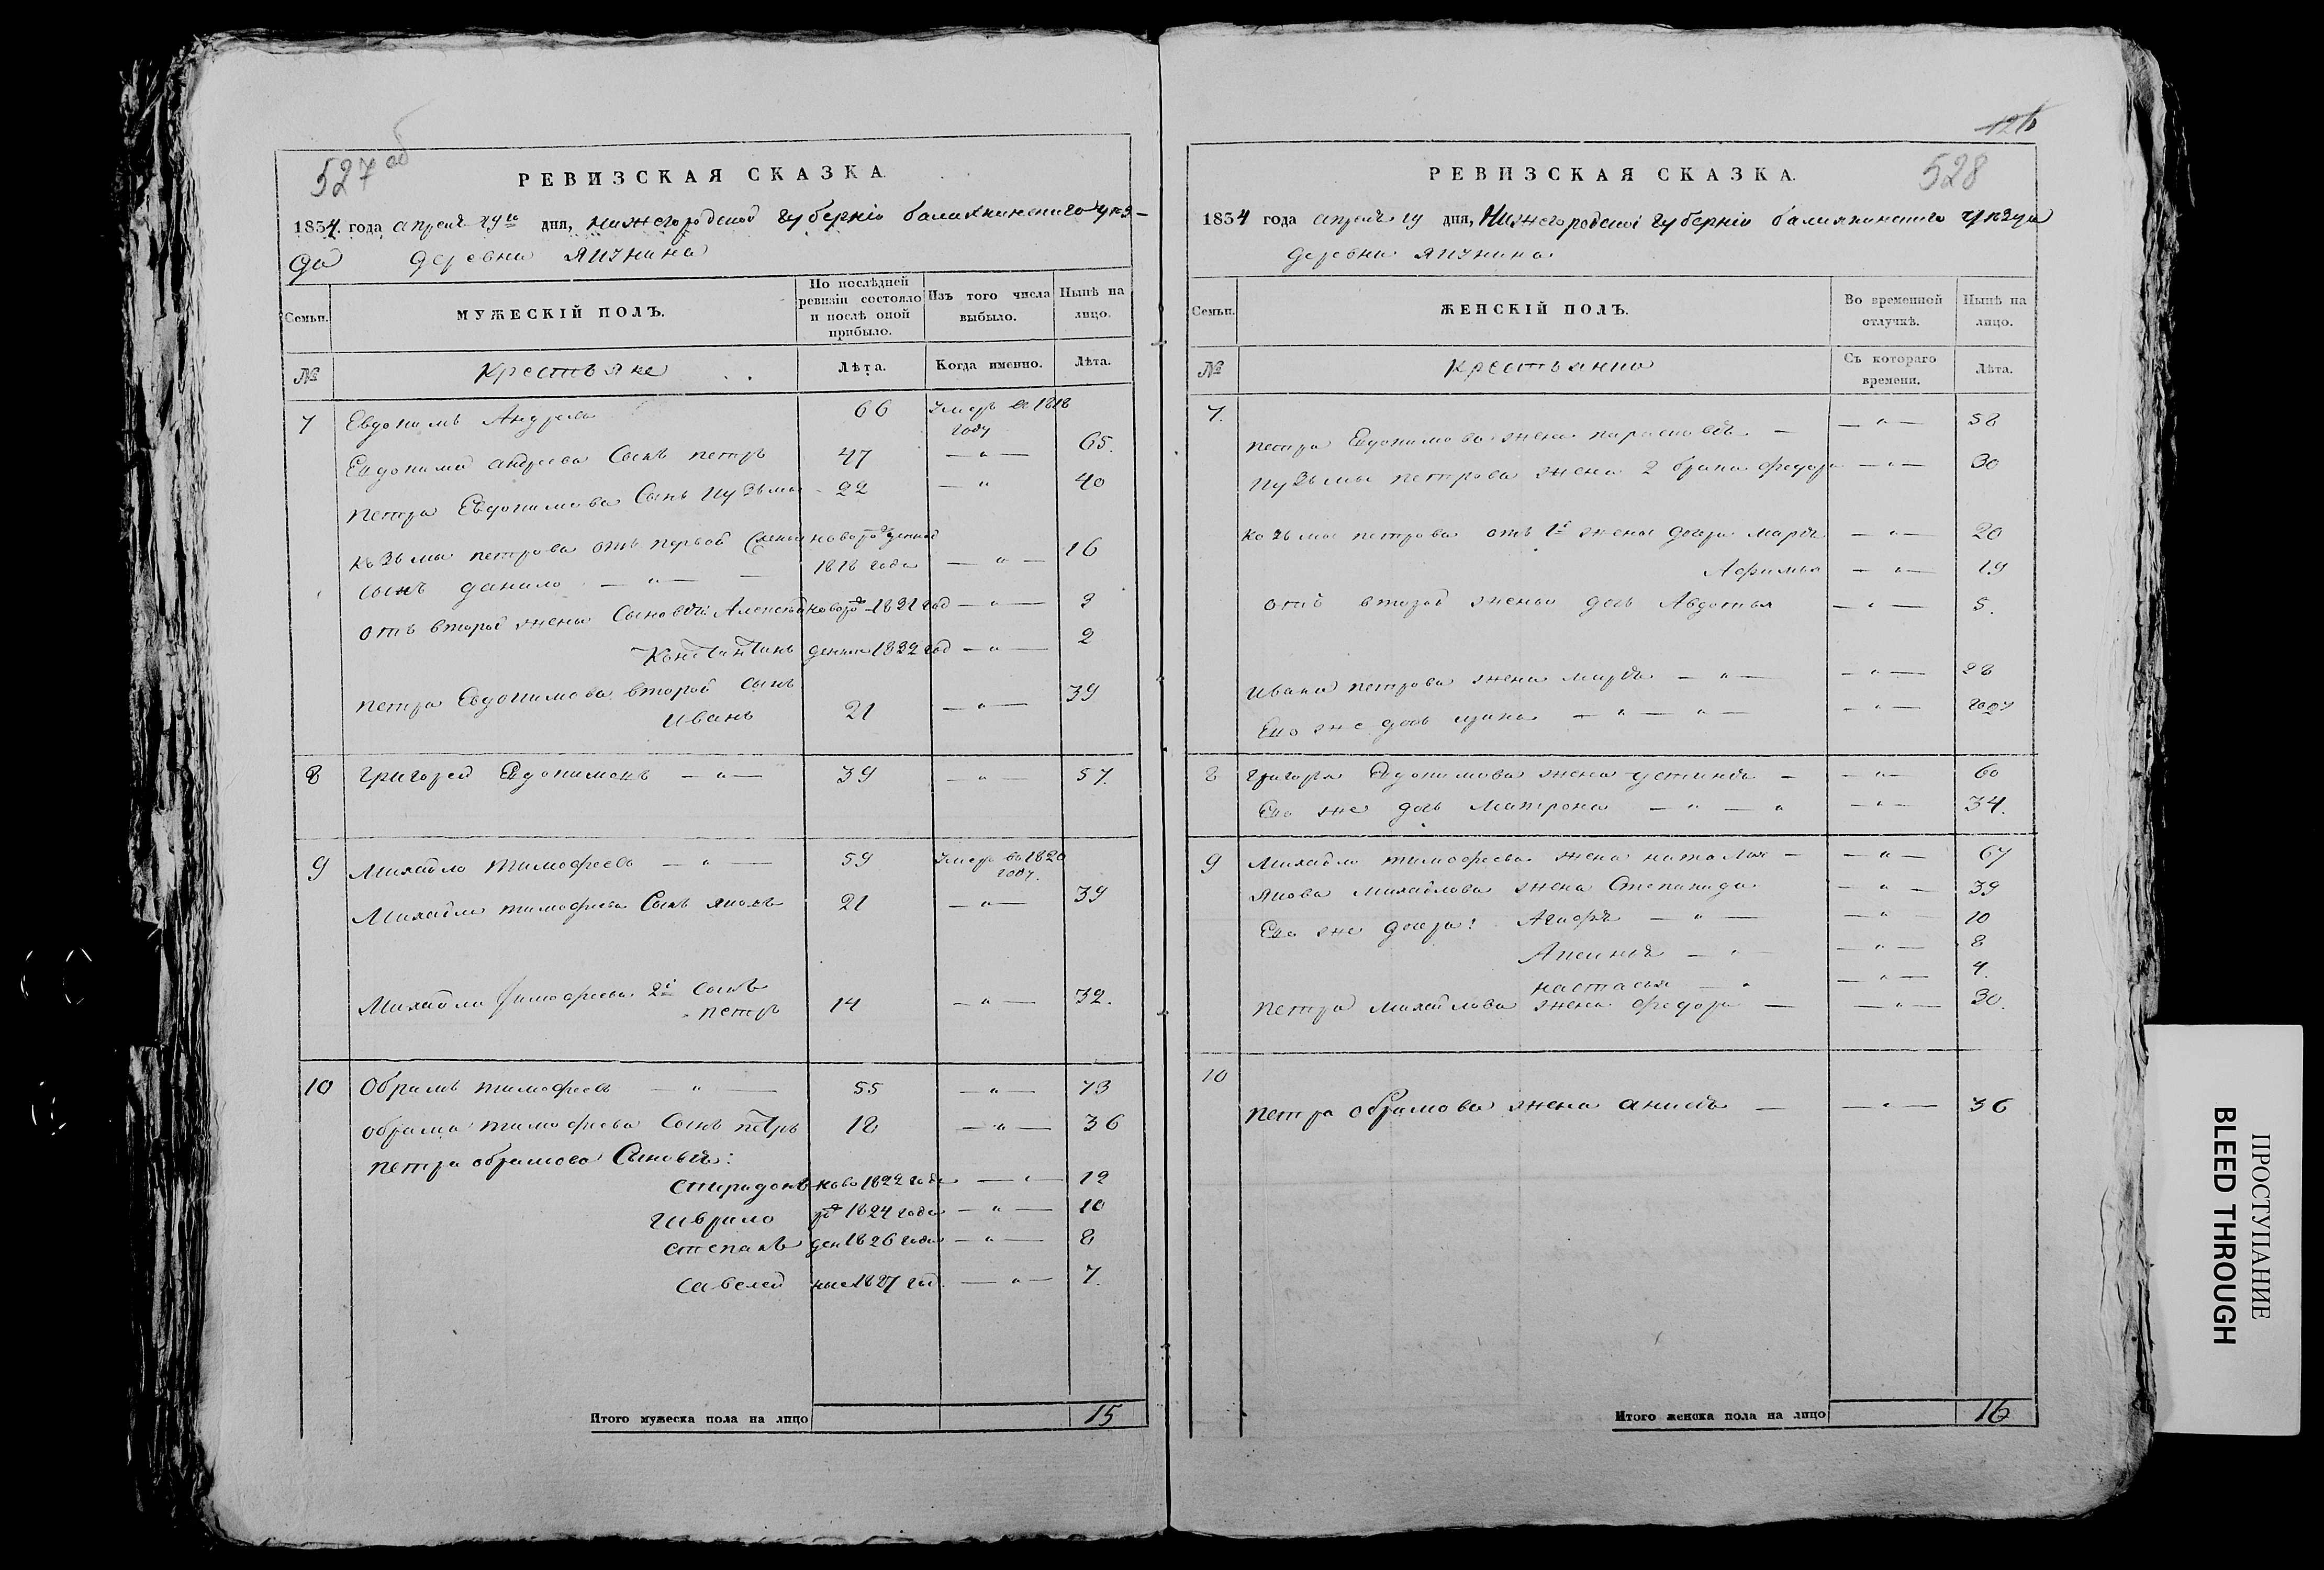 527 об
РЕВИЗСКАЯ СКАЗКА.
1834. года апреля 29го дня, нижегородской губернiи балахнинского уез-
да деревни
Семьи. МУЖЕСКIЙ ПОЛЪ. По послѣдней ревизiи состояло и послѣ оной прибыло. Изъ того числа выбыло. Нынѣ на лицо.
№ Крестьяне Лѣта. Когда именно. Лѣта.
7 Евдокимъ Андреевъ 66 Умеръ въ 1818 году
Евдокима андреева Сынъ петръ 47 — " — 65.
петра Евдокимова Сынъ Кузьма 22 — " 40
Козьмы петрова отъ первой жены новорожденной
сынъ данило — " — 1818 года — " — 16
отъ второй жены Сыновья: Алексей новорож 1831 год — " — 3
Константинъ денные 1832 год — " — 2
петра Евдокимова второй сынъ
иванъ 21 — " — 39
8 Григорей Евдокимовъ — " — 39 — " — 57.
9 Михайло тимофеевъ — " — 59 Умеръ въ 1820 году.
Михайлы тимофеева Сынъ яковъ 21 — " — 39
Михайлы тимофеева 2й сынъ
петръ 14 — " — 32.
10 Обрамъ тимофеевъ — " — 55 — " — 73
обрама тимофеева Сынъ петръ 18 — " — 36
петра обрамова Сыновья:
спиридонъ ново 1822 года — " — 12
гаврило рож 1824 года — " — 10
степанъ ден 1826 года — " — 8
савелей ные 1827 год. — " — 7.
Итого мужеска пола на лицо 15
126
528
РЕВИЗСКАЯ СКАЗКА.
1834 года апреля 29 дня, Нижегородской губернiи балахнинского уезда
деревни
Семьи. ЖЕНСКIЙ ПОЛЪ. Во временной отлучкѣ. Нынѣ на лицо.
№ Крестьянки Съ котораго времени. Лѣта.
7. петра Евдокимова жена парасковья — — " — 58
Кузьмы петрова жена 2 брака федора — " — 30
Козьмы петрова отъ 1й жены дочери марья — " — 20
Афимья — " — 19
отъ второй жены дочь Авдотья — " — 5.
Ивана петрова жена марья — " — — " — 38
Ево же дочь — " — " — — " —
8 григорья Евдокимова жена устинья — — " — 60
Ево же дочь матрона — " — " — " — 34.
9 Михайлы тимофеева жена наталья — — " — 67
якова михайлова жена Степанида — " — 39
Ево же дочери: Агафья — " — — " — 10
Аксинья — " — " — 8
настасья — " — " — 4.
петра михайлова жена федора — — " — 30.
10
петра обрамова жена анисья — — " — 36
Итого женска пола на лицо 16
ПРОСТУПАНИЕ
BLEED THROUGH